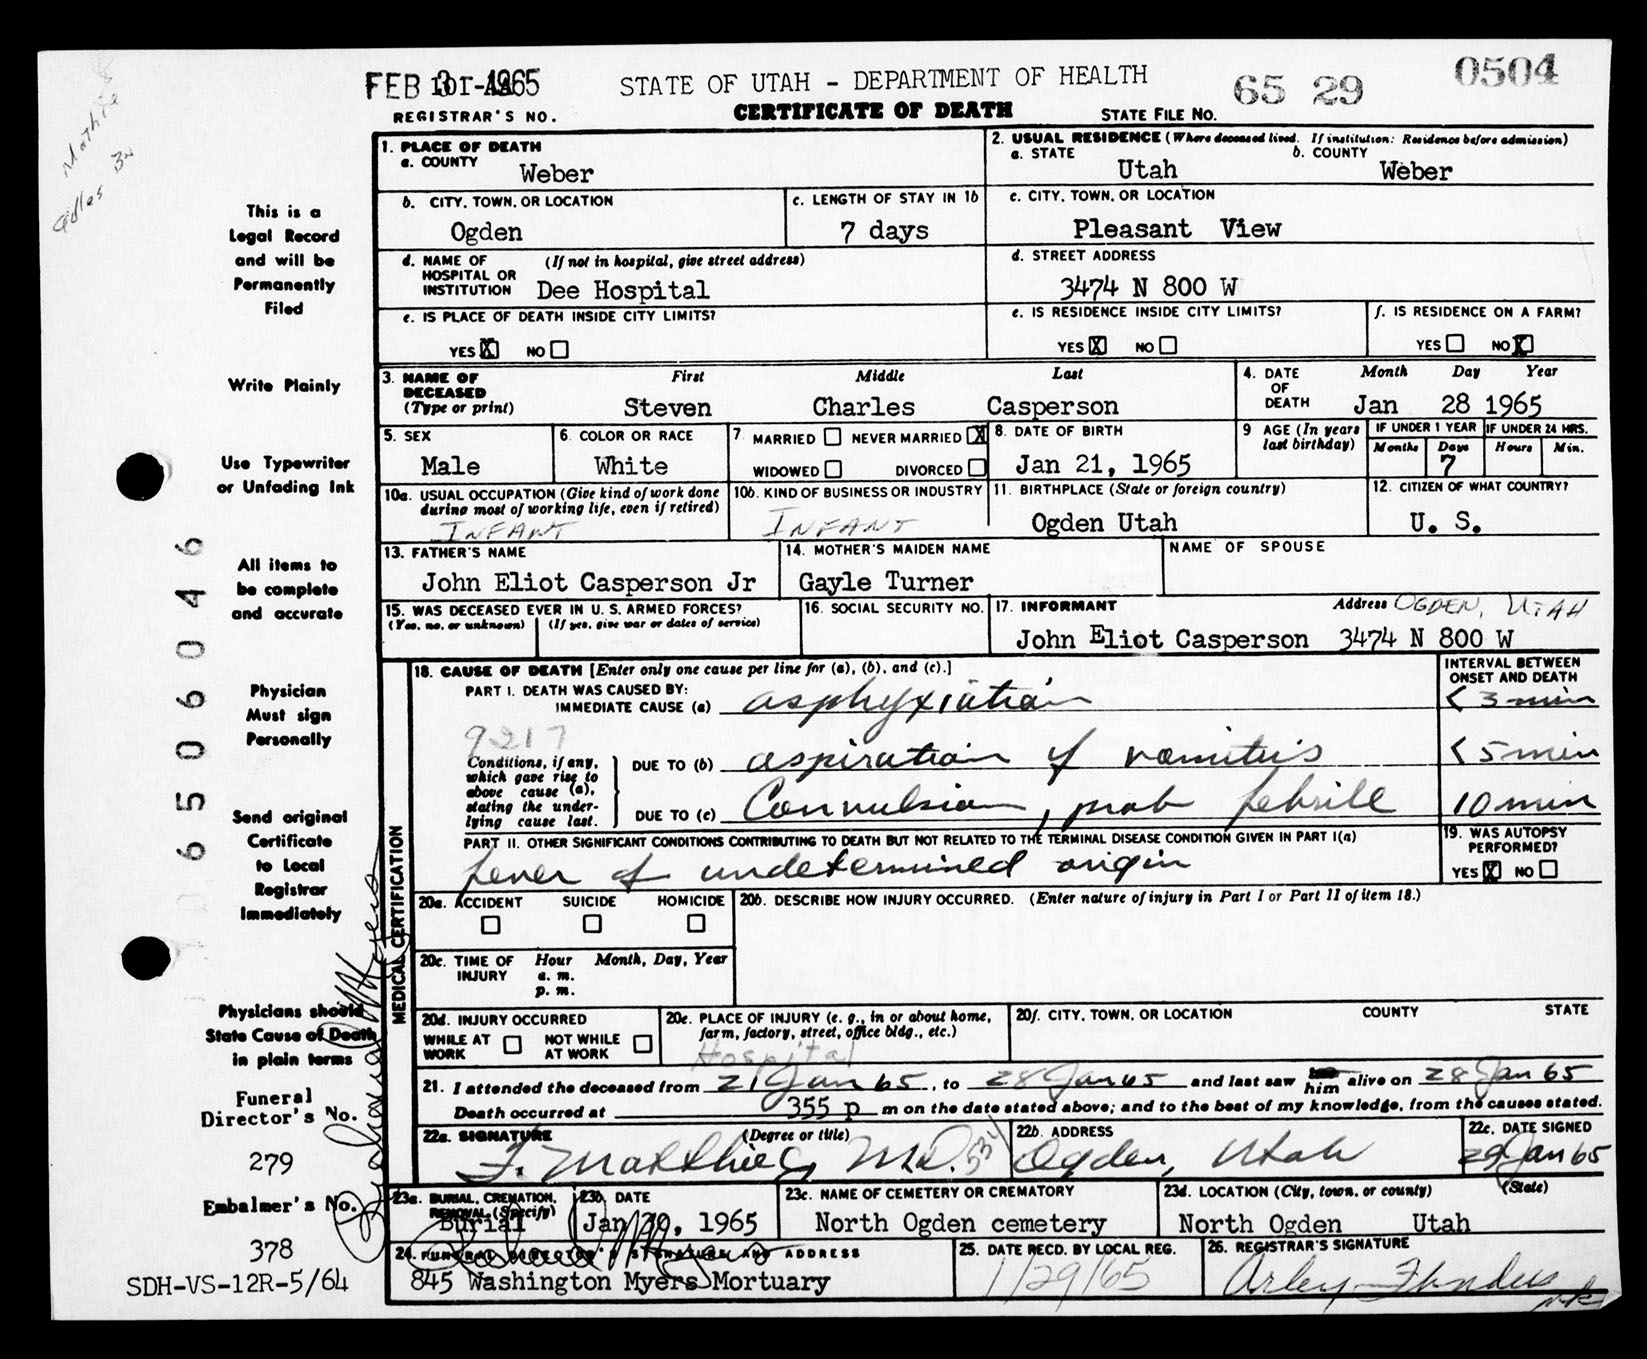 FEB 3 1965
STATE OF UTAH - DEPARTMENT OF HEALTH
65 29
0504
REGISTRAR'S NO.
CERTIFICATE OF DEATH
STATE FILE NO.
1. PLACE OF DEATH
a. COUNTY
Weber
2. USUAL RESIDENCE (Where deceased lived. If institution: Residence before admission)
a. STATE
Utah
b. COUNTY
Weber
b. CITY, TOWN, OR LOCATION
Ogden
c. LENGTH OF STAY IN 1b
7 days
c. CITY, TOWN, OR LOCATION
Pleasant View
d. NAME OF HOSPITAL OR INSTITUTION
(If not in hospital, give street address)
Dee Hospital
d. STREET ADDRESS
3474 N 800 W
e. IS PLACE OF DEATH INSIDE CITY LIMITS?
YES X NO
e. IS RESIDENCE INSIDE CITY LIMITS?
YES X NO
f. IS RESIDENCE ON A FARM?
YES NO X
3. NAME OF DECEASED
(Type or print)
First Middle Last
Steven Charles Casperson
4. DATE OF DEATH
Month Day Year
Jan 28 1965
5. SEX
Male
6. COLOR OR RACE
White
7. MARRIED NEVER MARRIED X
WIDOWED DIVORCED
8. DATE OF BIRTH
Jan 21, 1965
9 AGE (In years last birthday)
IF UNDER 1 YEAR
Months Days
7
IF UNDER 24 HRS.
Hours Min.
10a. USUAL OCCUPATION (Give kind of work done during most of working life, even if retired)
INFANT
10b. KIND OF BUSINESS OR INDUSTRY
INFANT
11. BIRTHPLACE (State or foreign country)
Ogden Utah
12. CITIZEN OF WHAT COUNTRY?
U. S.
13. FATHER'S NAME
John Eliot Casperson Jr
14. MOTHER'S MAIDEN NAME
Gayle Turner
NAME OF SPOUSE
15. WAS DECEASED EVER IN U. S. ARMED FORCES?
(Yes, no, or unknown) (If yes, give war or dates of service)
16. SOCIAL SECURITY NO.
17. INFORMANT Address OGDEN, UTAH
John Eliot Casperson 3474 N 800 W
18. CAUSE OF DEATH [Enter only one cause per line for (a), (b), and (c).]
INTERVAL BETWEEN ONSET AND DEATH
PART I. DEATH WAS CAUSED BY:
IMMEDIATE CAUSE (a) asphyxiation < 3 min
9217
Conditions, if any, which gave rise to above cause (a), stating the underlying cause last.
DUE TO (b) aspiration of vomitus < 5 min
DUE TO (c) Convulsion, prob febrile 10 min
PART II. OTHER SIGNIFICANT CONDITIONS CONTRIBUTING TO DEATH BUT NOT RELATED TO THE TERMINAL DISEASE CONDITION GIVEN IN PART I(a)
fever of undetermined origin
19. WAS AUTOPSY PERFORMED?
YES X NO
20a. ACCIDENT SUICIDE HOMICIDE
20b. DESCRIBE HOW INJURY OCCURRED. (Enter nature of injury in Part I or Part II of item 18.)
20c. TIME OF INJURY
Hour Month, Day, Year
a. m.
p. m.
20d. INJURY OCCURRED
WHILE AT WORK NOT WHILE AT WORK
20e. PLACE OF INJURY (e. g., in or about home, farm, factory, street, office bldg., etc.)
Hospital
20f. CITY, TOWN, OR LOCATION COUNTY STATE
21. I attended the deceased from 21 Jan 65, to 28 Jan 65 and last saw him alive on 28 Jan 65
Death occurred at 355 p m on the date stated above; and to the best of my knowledge, from the causes stated.
22a. SIGNATURE (Degree or title)
F. Matthies, MD.
22b. ADDRESS
Ogden, Utah
22c. DATE SIGNED
29 Jan 65
23a. BURIAL, CREMATION, REMOVAL (Specify)
Burial
23b. DATE
Jan 30, 1965
23c. NAME OF CEMETERY OR CREMATORY
North Ogden cemetery
23d. LOCATION (City, town, or county) (State)
North Ogden Utah
24. FUNERAL DIRECTOR'S SIGNATURE AND ADDRESS
845 Washington Myers Mortuary
25. DATE RECD. BY LOCAL REG.
1/29/65
26. REGISTRAR'S SIGNATURE
MEDICAL CERTIFICATION
This is a
Legal Record
and will be
Permanently
Filed
Write Plainly
Use Typewriter
or Unfading Ink
All items to
be complete
and accurate
Physician
Must sign
Personally
Send original
Certificate
to Local
Registrar
Immediately
Physicians should
State Cause of Death
in plain terms
Funeral
Director's No.
279
Embalmer's No.
378
SDH-VS-12R-5/64
6506046